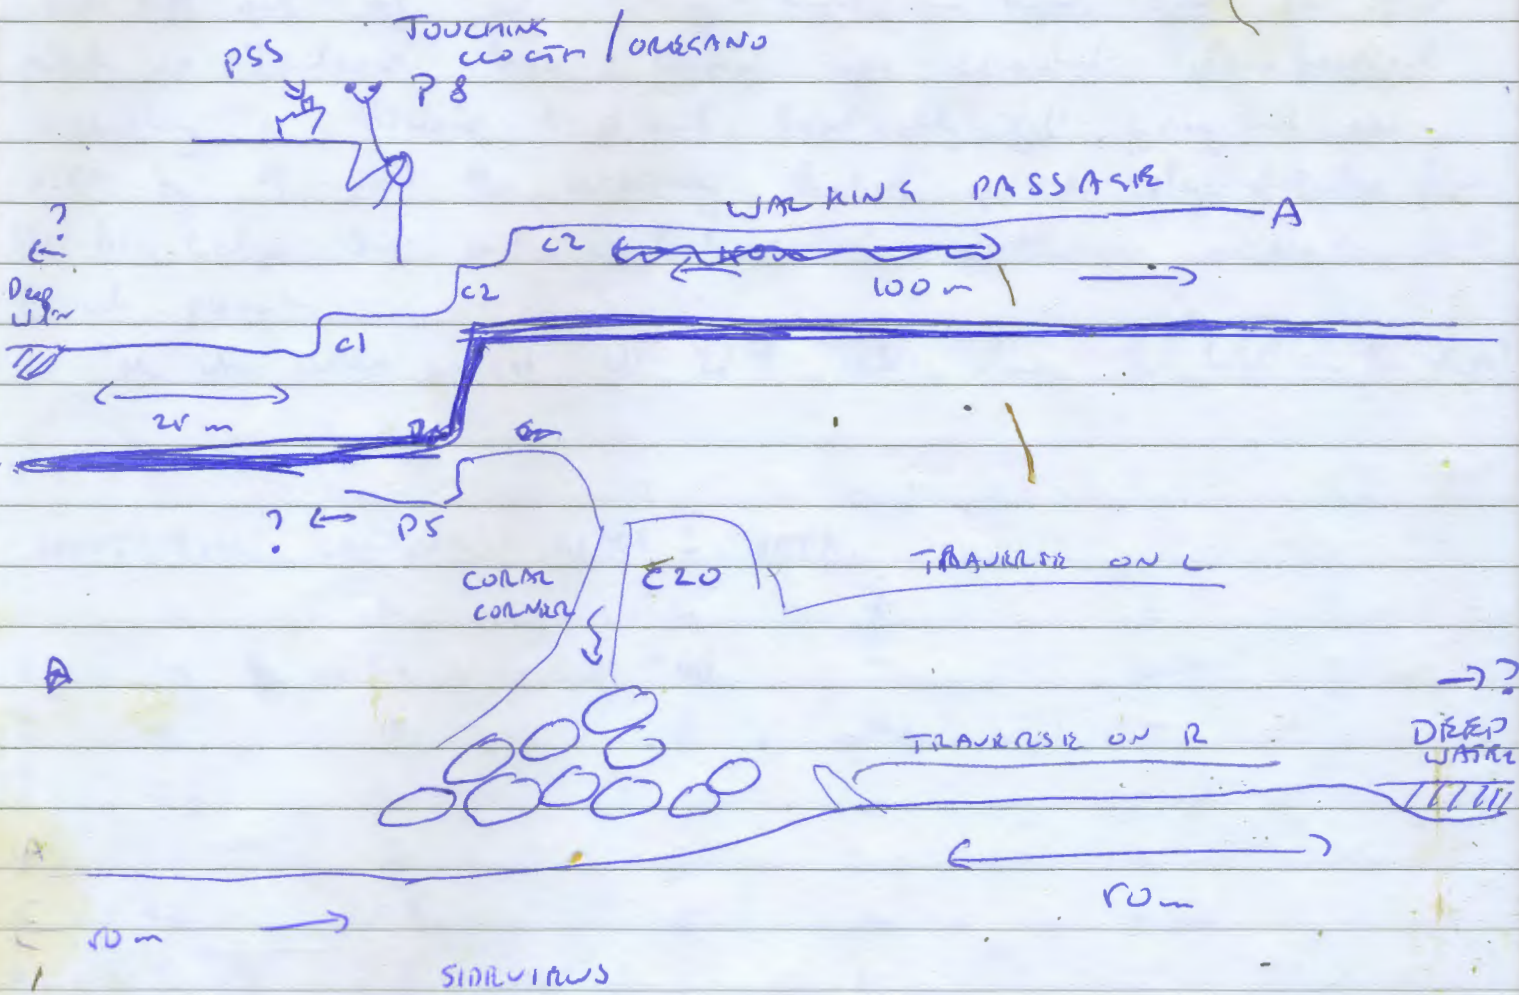 TOUCHING
CLOTH / OREGANO
PSS
P8
WALKING PASSAGE
A
?
C2
100m
C2
Deep
C1
25 m
? P5
CORAL
CORNER
C20
TRAVERSE ON L
A
?
TRAVERSE ON R
DEEP
WATER
A
50m
50m
SIDEVIRUS